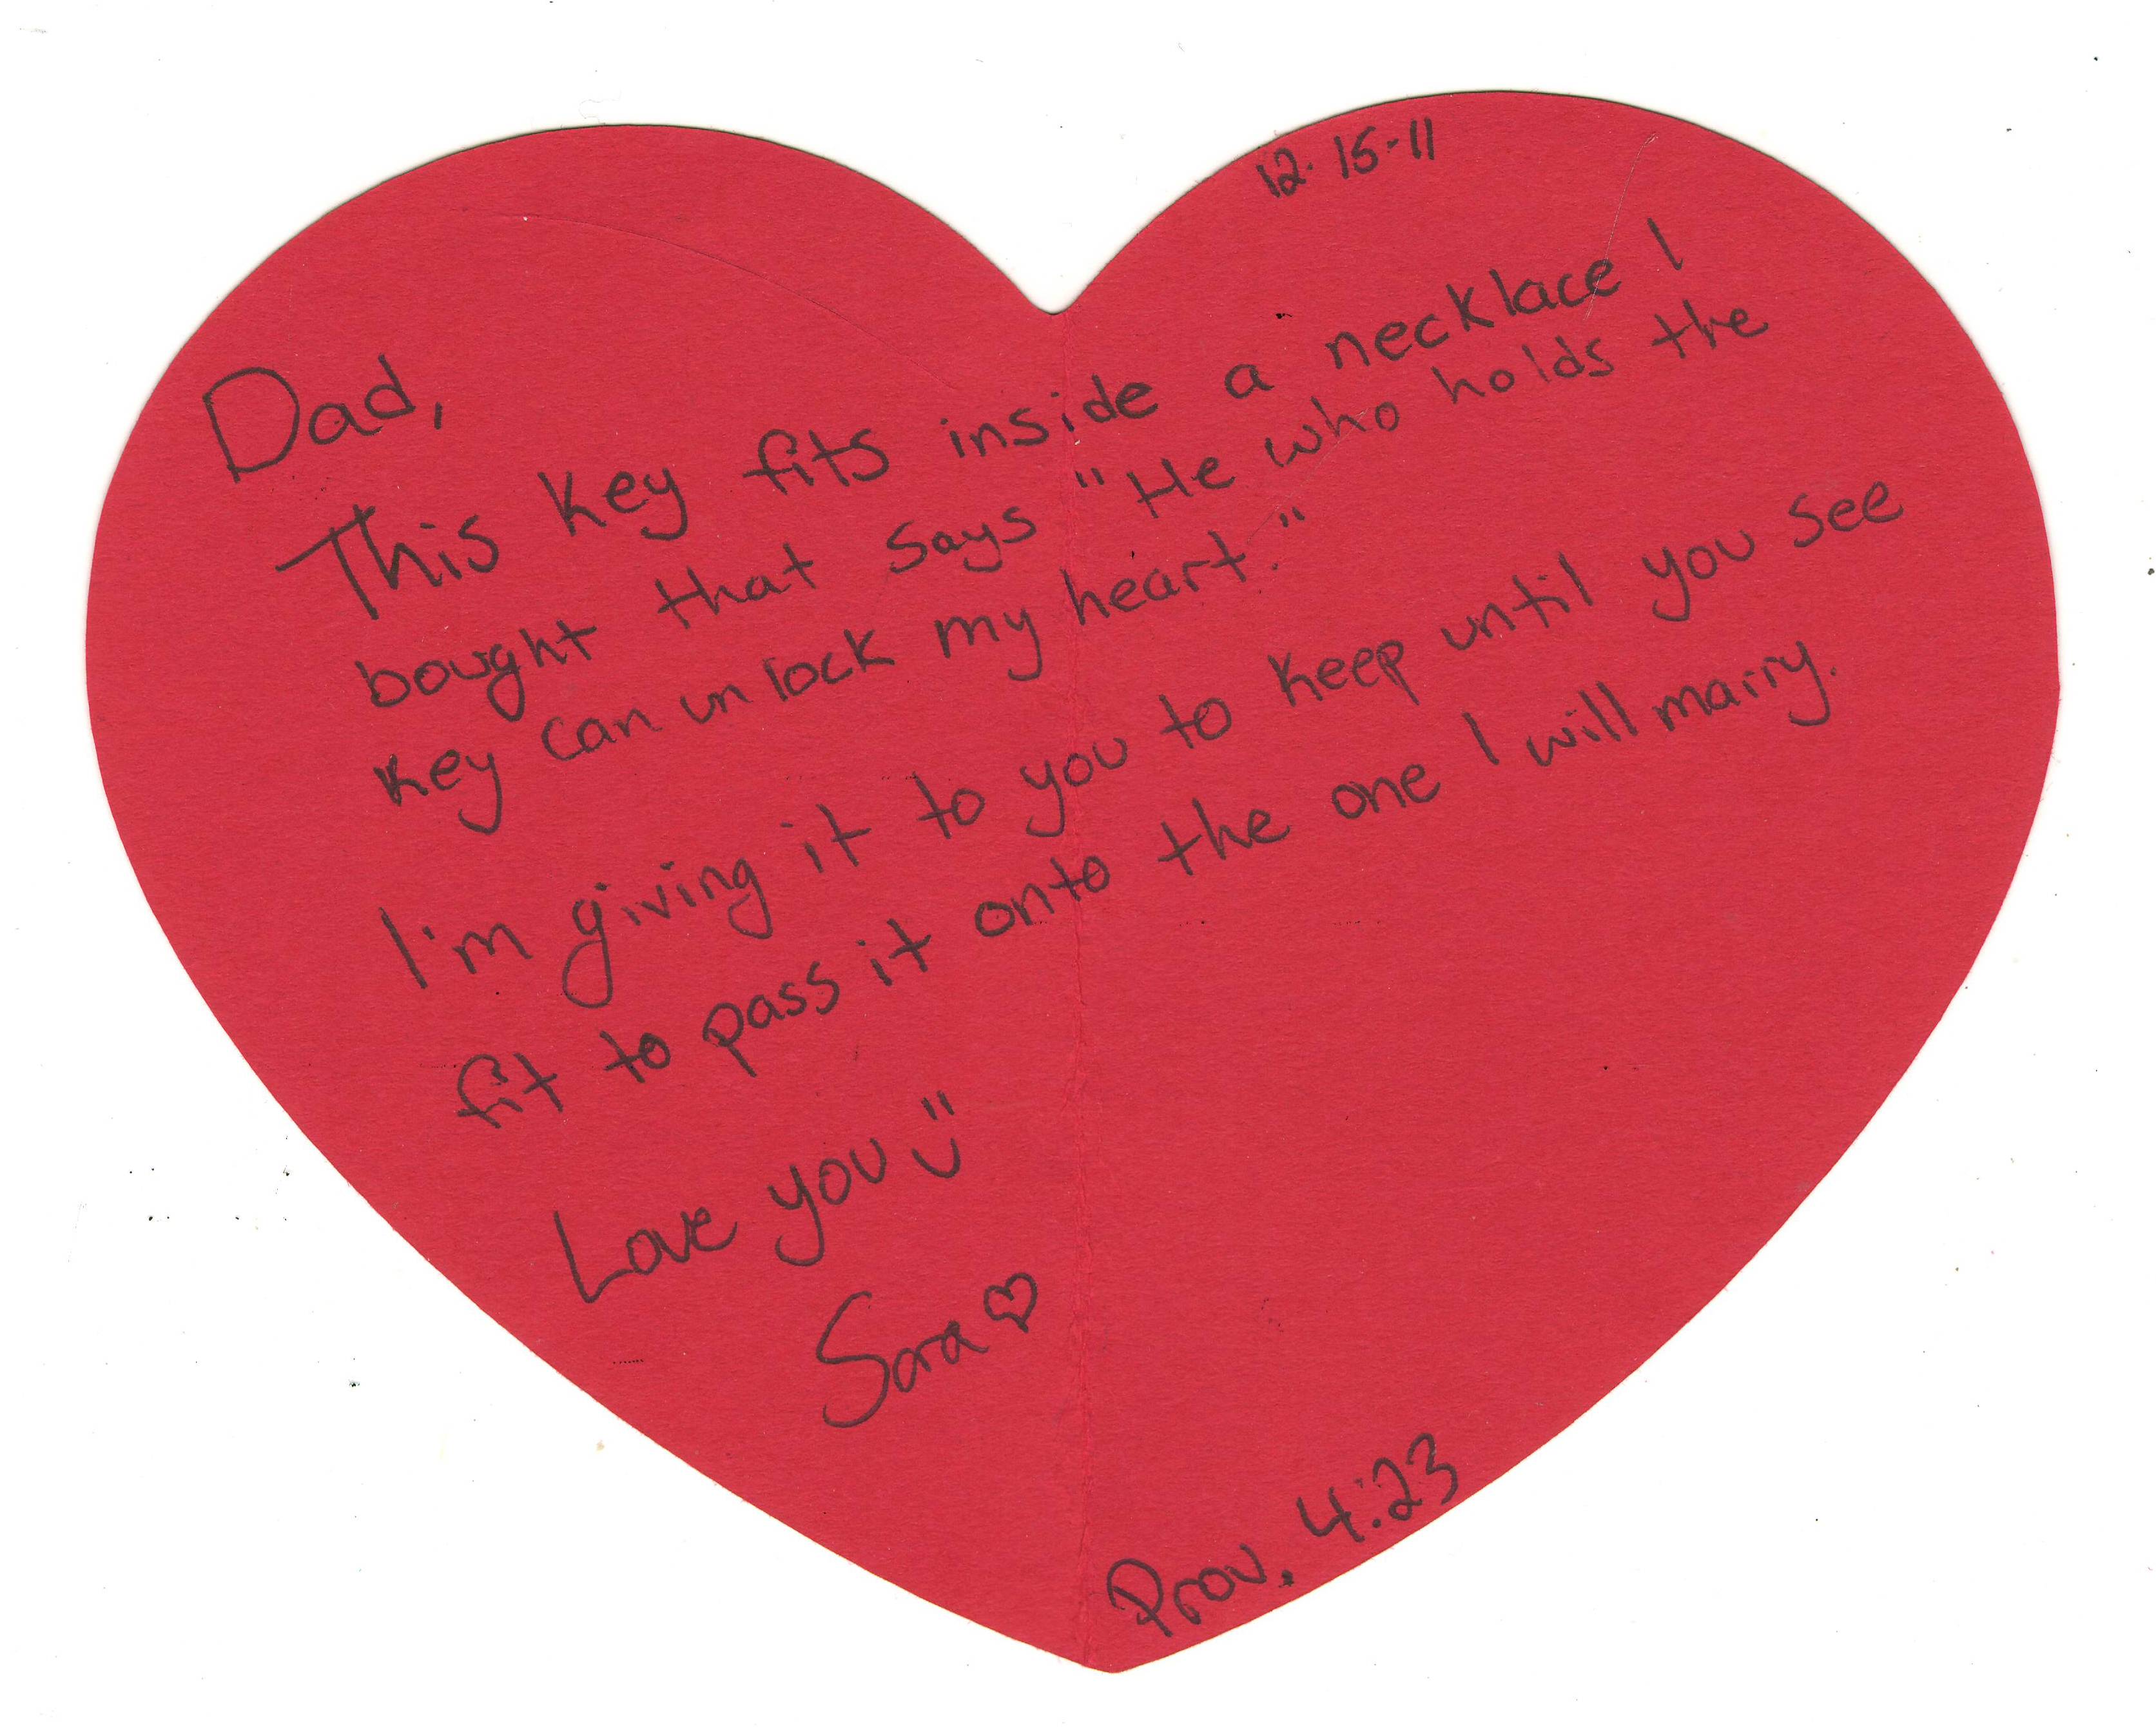 12.15.11
Dad,
This key fits inside a necklace I
bought that says "He who holds the
key can unlock my heart."
I'm giving it to you to keep until you see
fit to pass it onto the one I will marry.
Love you :)
Sara ♡
Prov. 4:23